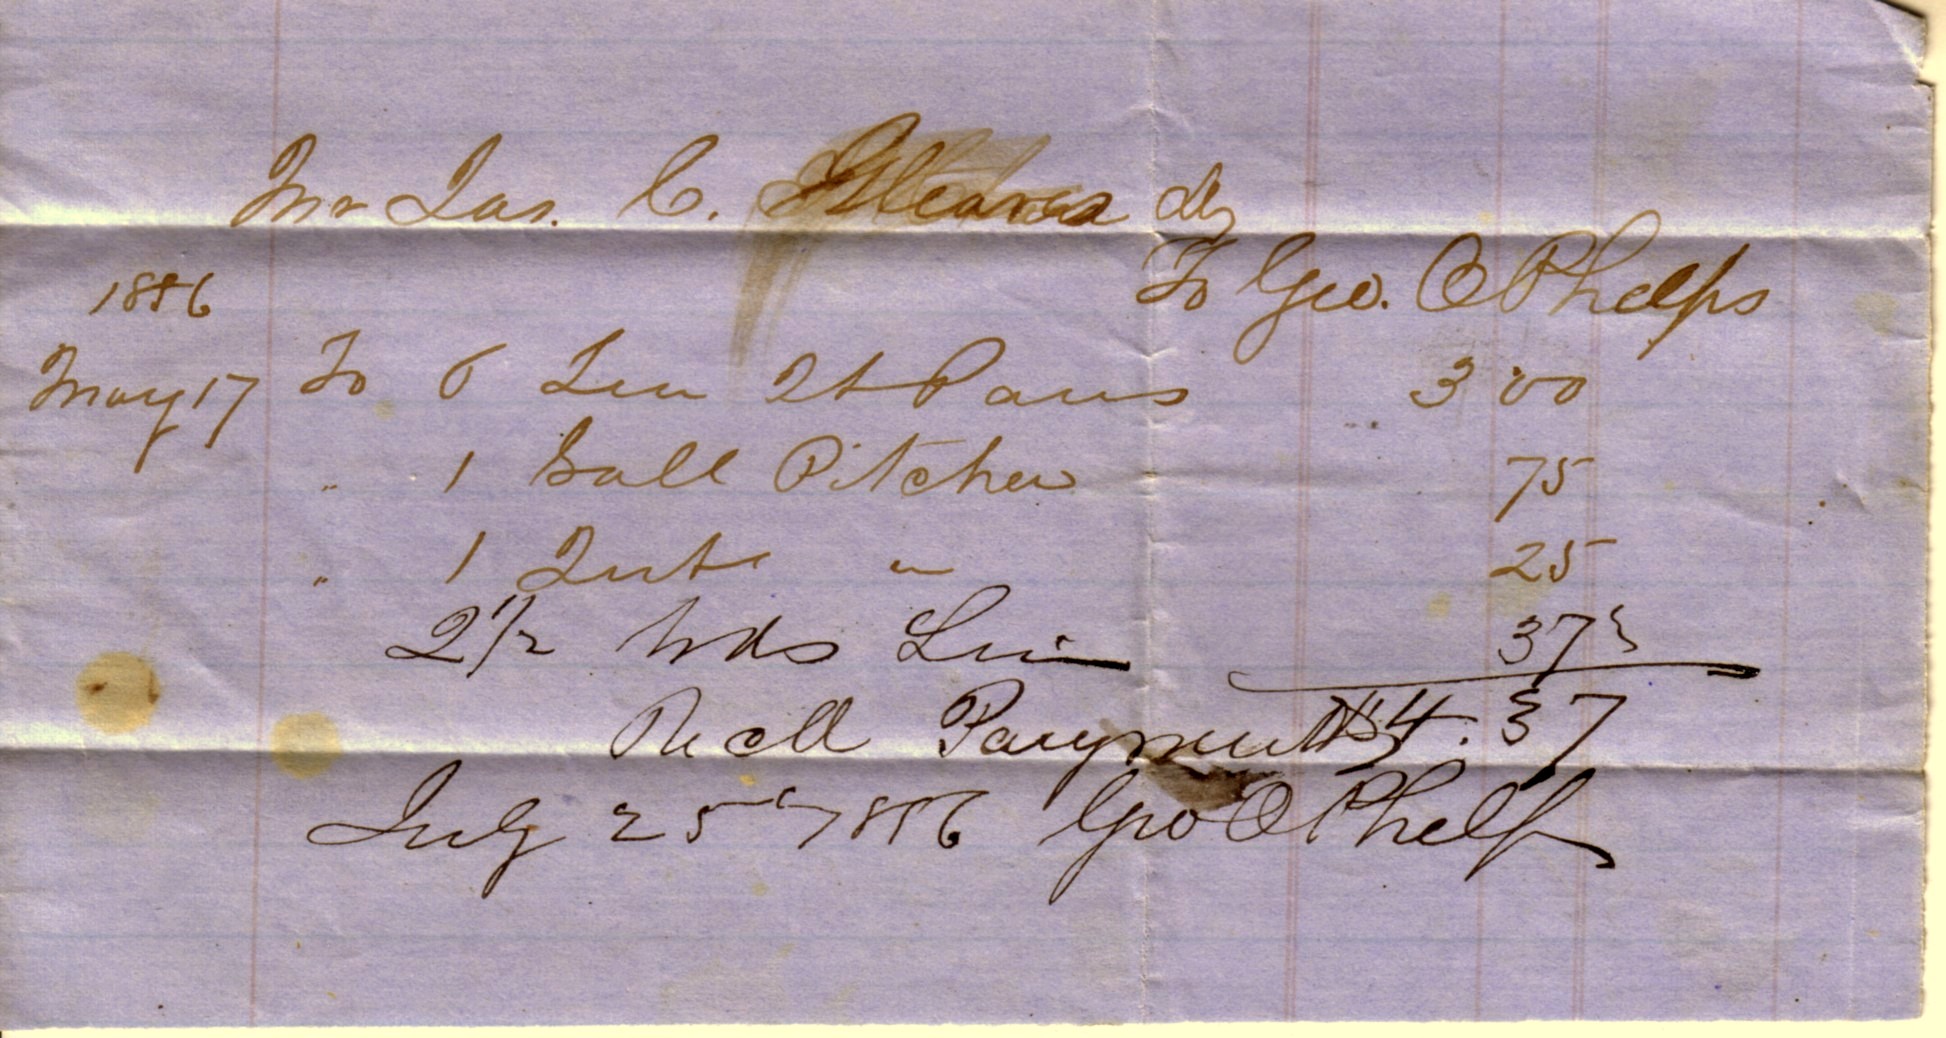 Mr Jas. C. Dr
To Geo. O Phelps
1856
May 17 To 6 Tin Qt Pans 3 00
" 1 Gall Pitcher 75
" 1 Qut " 25
2 1/2 Tin 37
Recd Payment $4.37
July 25 1856 Geo O Phelps